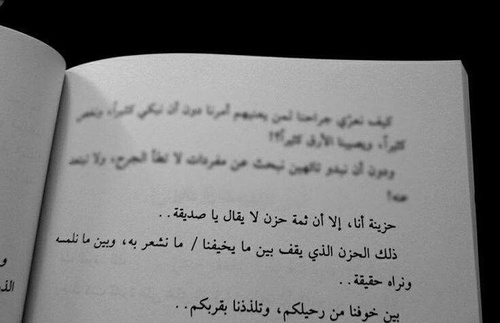 كيف نعرّي جراحنا لمن يعنيهم أمرنا دون أن نبكي كثيراً، ونغص
كثيراً، ويصيبنا الأرق كثيراً؟!
ودون أن نبدو تائهين نبحث عن مفردات لا تطأ الجرح، ولا تبتعد
عنه!
حزينة أنا، إلا أن ثمة حزن لا يقال يا صديقة..
ذلك الحزن الذي يقف بين ما يخيفنا / ما نشعر به، وبين ما نلمسه
ونراه حقيقة..
بين خوفنا من رحيلكم، وتلذذنا بقربكم..